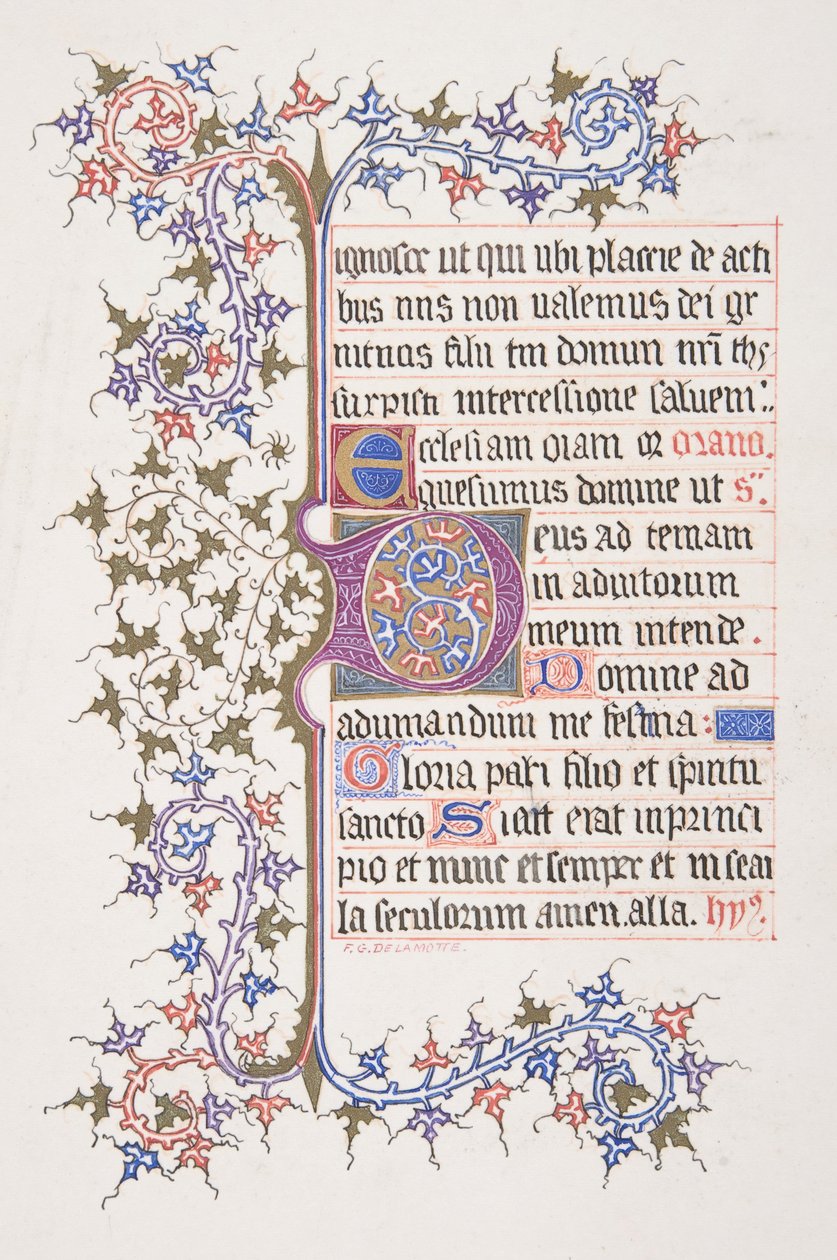 ignosce ut qui ubi placrie de acti
bus nns non ualemus dei gr
filii tm domun nri
intercessione saluem
Ecclesiam oram or orano.
quesumus domine ut s
Deus ad temam
in aduitorum
meum intende.
Domine ad
adumandum me festina:
Gloria patri filio et spiritu
sancto Sicut erat in princi
pio et nunc et semper et in secu
la seculorum amen. alla. hy
F. G. DELAMOTTE.